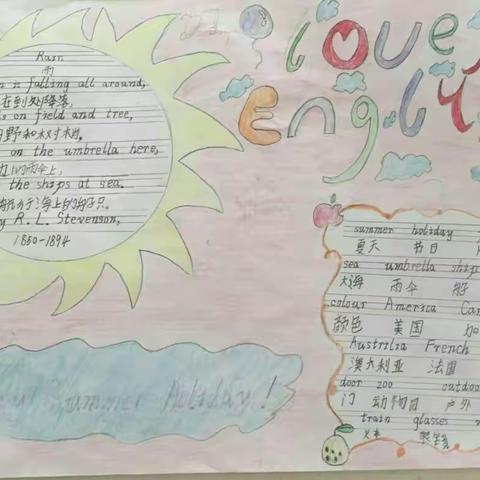 Rain
雨
is falling all around,
在到处降落,
is on field and tree,
田野和树梢,
on the umbrella here,
the ships at sea.
R. L. Stevenson,
1850-1894
I LOVE
English
summer holiday
夏天 节日
sea umbrella ship
大海 雨伞 船
colour America Can
颜色 美国 加
Austrilia French
澳大利亚 法国
door zoo outdoor
门 动物园 户外
train glasses
火车 眼镜
Summer Holiday!